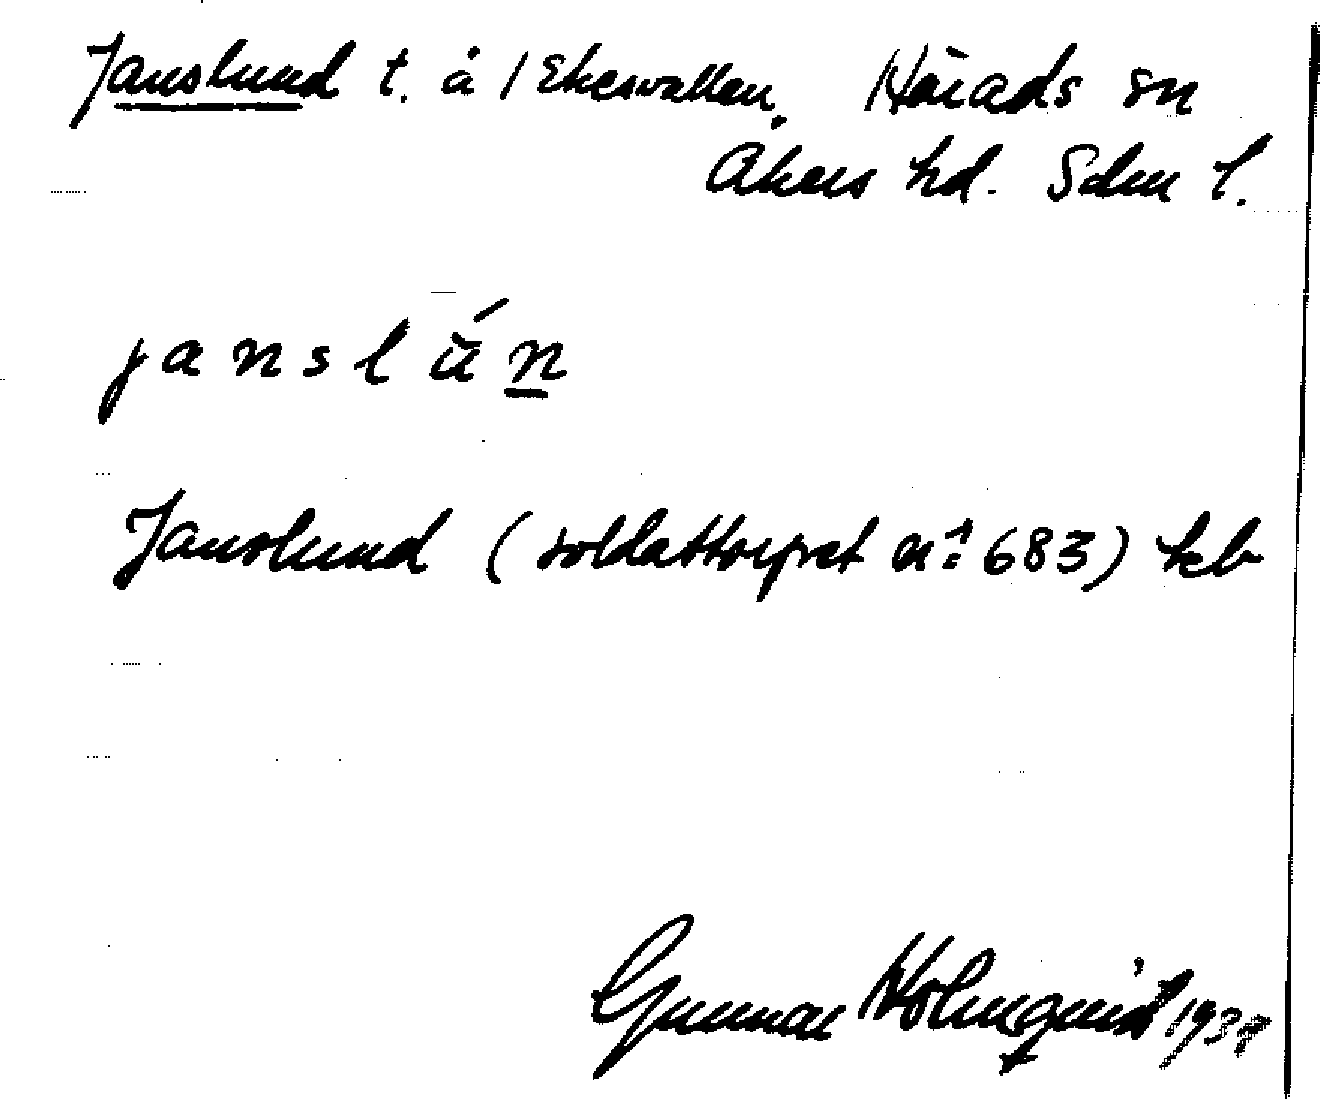 Janslund t. å 1 Ekesvallen. Härads sn
Åkers hd. Sdm l.
janslŭ́n
Janslund (soldattorpet nr: 683) kb
Gunnar Holmquist 1937